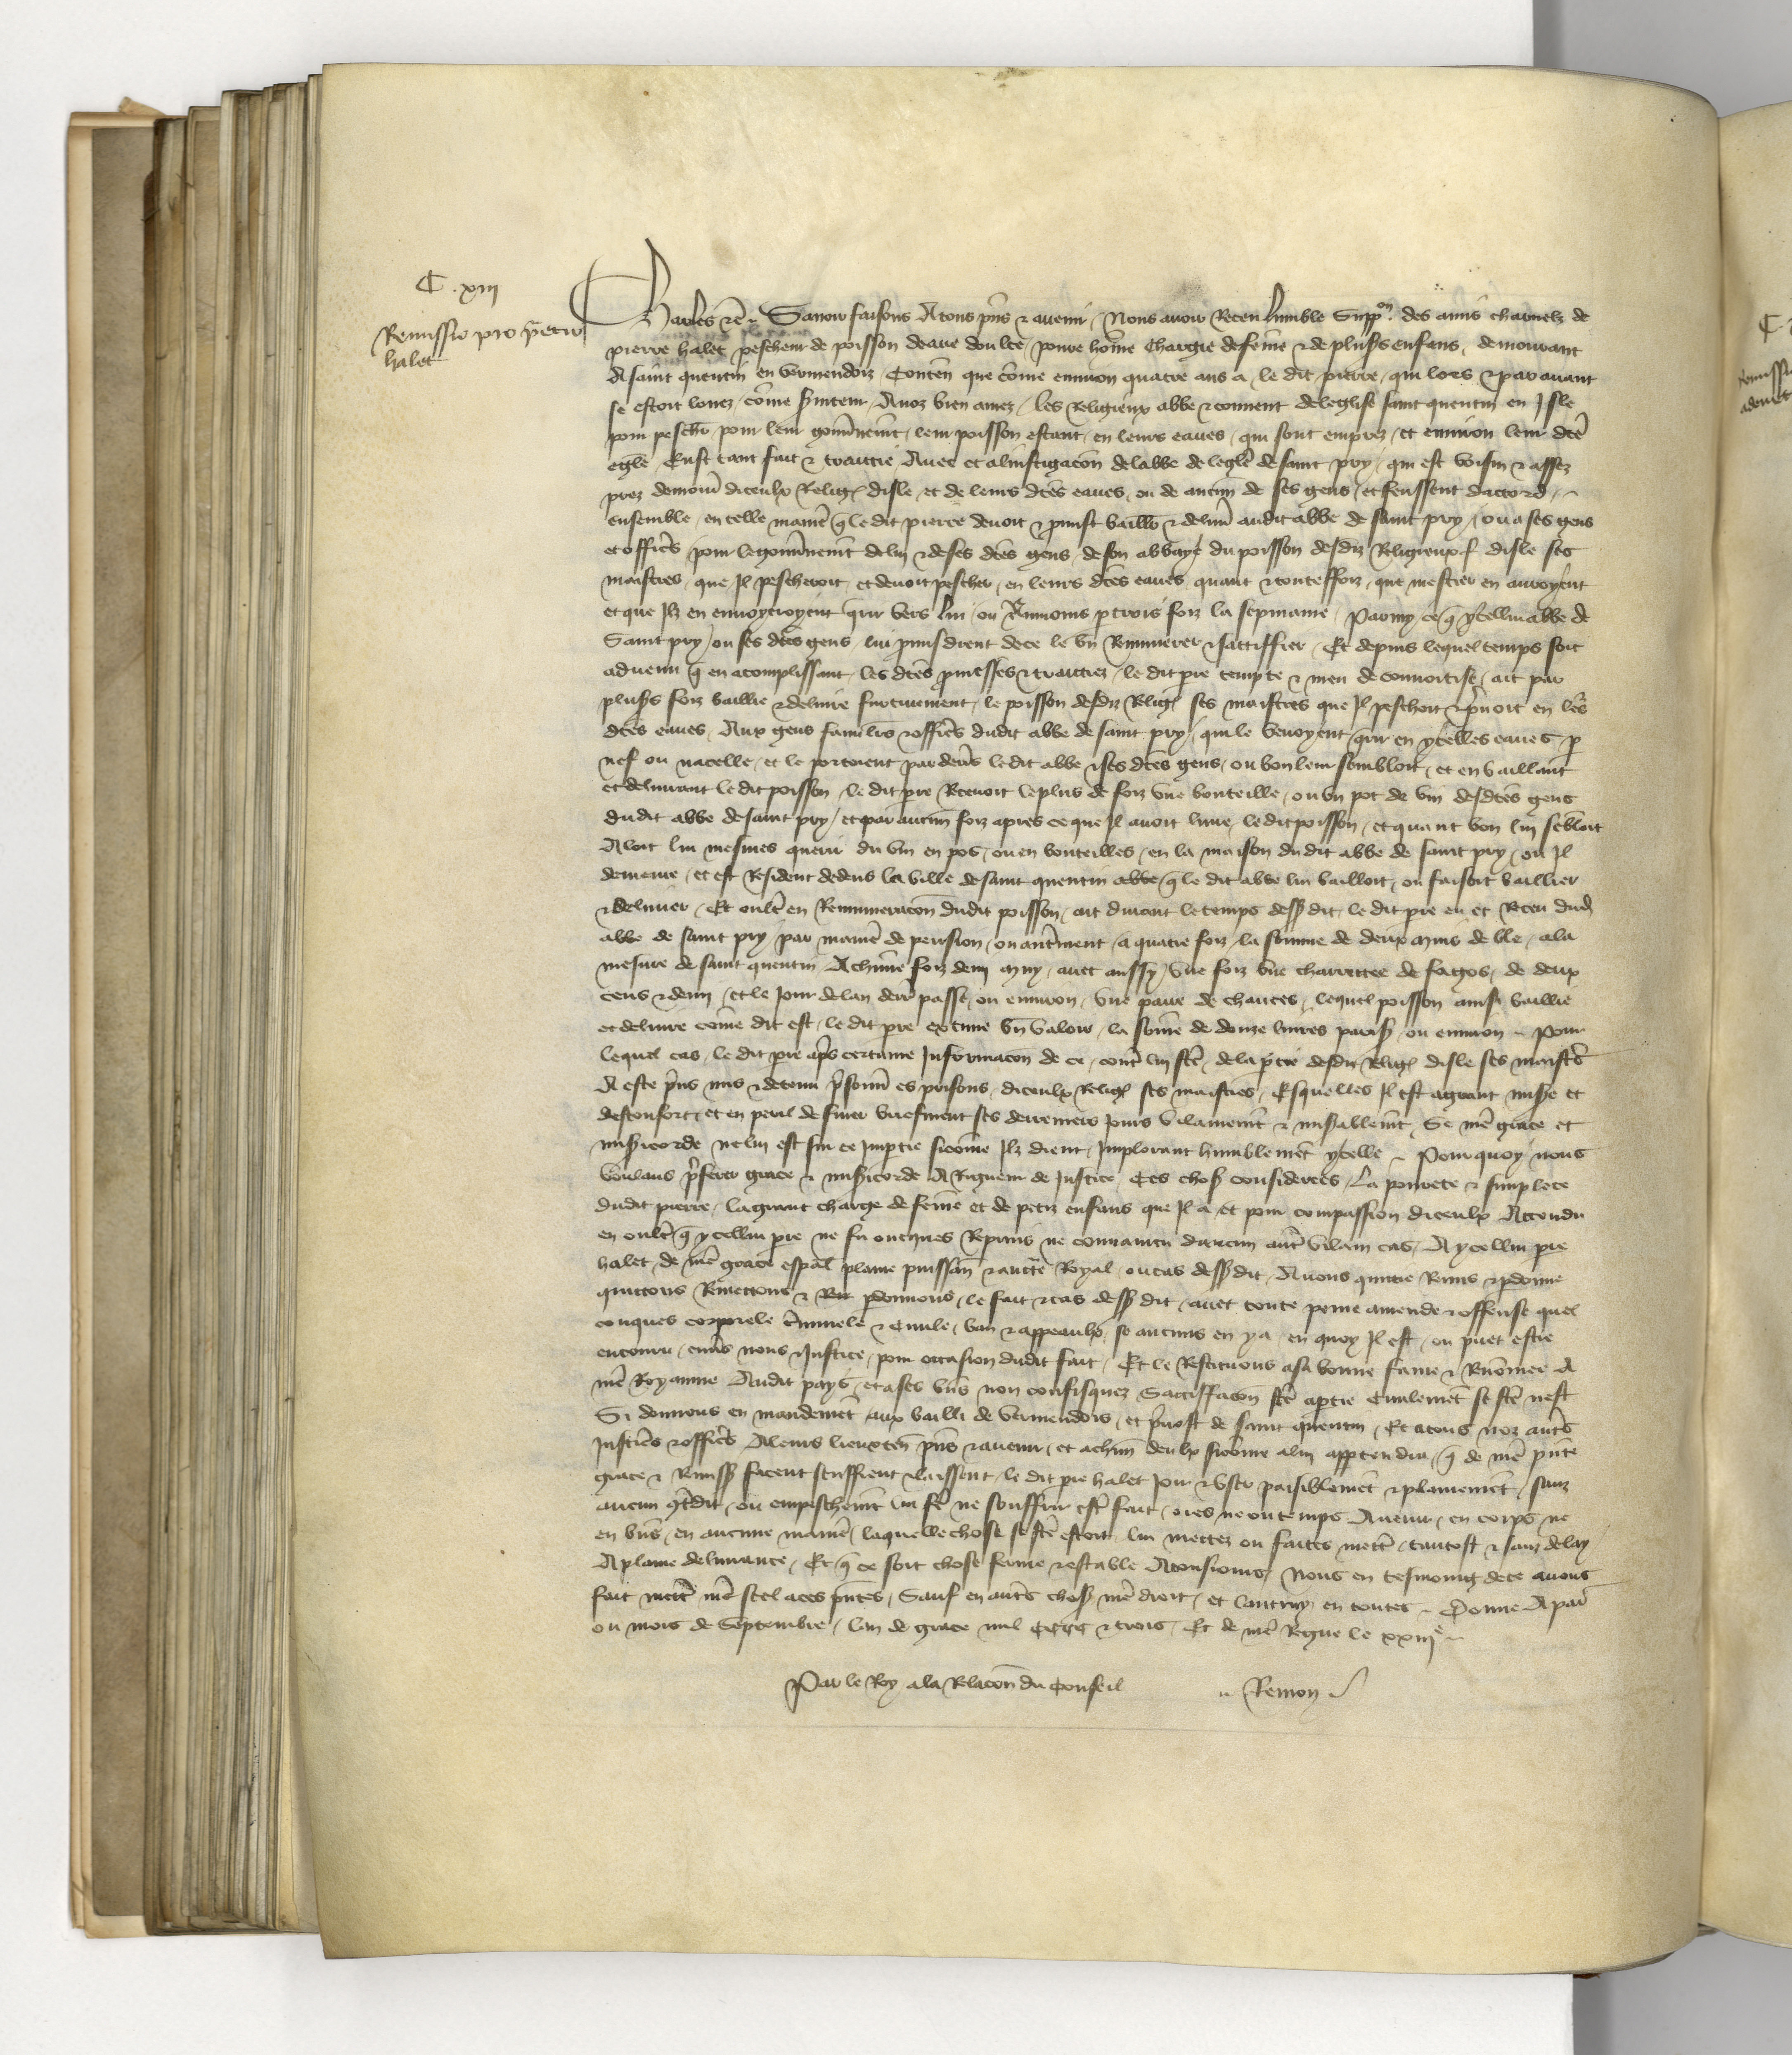 C. xiii
Remissio pro petro
halet
Charles etc. Savoir faisons A tous pns & avenir Nous avoir Receu humble Suppon. des amis charnelz de
pierre halet pescheur de poisson deaue doulce povre home Chargie de feme & de plusrs enfans, demourant
A saint quentin en vermendoiz Conten que come environ quatre ans a, le dit pierre, qui lors & par avant
se estoit louez, come serviteur, A noz bien amez, les Religieux abbe & convent de leglise saint quentin en Isle
pour peschr pour leur gouvnemt, leur poisson estant, en leurs eaues, qui sont emprez, et environ leur dce
egle, Eust tant fait & traittie Avec et a linstigacon de labbe de legle de saint pry, qui est voisin & assez
prez demour diceulx Relig disle, et de leurs dces eaues, ou de aucun de ses gens, et feussent dacord
ensemble, en telle manie q le dit pierre devoit & pmist baillr & delivr audit abbe de saint pry, ou a ses gens
et offics pour le gouvnemt de lui & de ses dces gens, de son abbaye du poisson desdiz Religieux disle ses
maistres, que Il pescheroit et devoit pescher, en leurs dces eaues quant & touteffoiz, que mestier en auroyent
et que Ilz en envoyeroyent qrir vers lui, ou Au moins p trois foiz la sepmaine, Parmy ce q ycellui abbe de
Saint pry, ou ses dces gens, lui pmisdrent de ce le bn Remunerer & sattiffier, Et depuis lequel temps soit
advenu q en acomplissant, les dces pmesses & traittiez, le dit pre tempte & meu de convoitise, ait par
plusrs foiz baillie & delivre furtivement, le poisson desdiz Relig ses maistres que Il peschoit & pnoit en lrs
dces eaues, Aux gens familrs & offics dudit abbe de saint pry, qui le venoyent qrir en ycelles eaues p
nef ou nacelle, et le portoient par devs le dit abbe & ses dces gens, ou bon leur sembloit, et en baillant
et delivrant le dit poisson, le dit pre Recevoit le plus de foiz une bouteille, ou un pot de vin desdces gens
dudit abbe de saint pry, et par aucun foiz apres ce que Il avoit livre, le dit poisson, et quant bon lui sebloit
Aloit lui mesmes querir du vin en pos, ou en bouteilles, en la maison du dit abbe de saint pry, ou Il
demeure, et est Resident dedens la ville de saint quentin abbe q le dit abbe lui bailloit, ou faisoit baillier
& delivrer, Et oultr en Remuneracon dudit poisson, ait durant le temps dessus dit, le dit pre eu et Receu dud
abbe de saint pry, par manie de pension, ou autrment, a quatre foiz, la somme de deux muis de ble, a la
mesure de saint quentin A chune foiz demi muy, avec aussy, une foiz une charrettee de fagos, de deux
cens & demi, et le Jour de lan derr passe, ou environ, une paire de chauces, lequel poisson ainsi baillie
et delivre come dit est, le dit pre extime bn valoir, la some de douze livres paris, ou environ, Pour
lequel cas, le dit pre aps certaine Informacon de ce, contr lui fce, de la ptie desdiz Relig disle ses maistrs
A este prins mis & detenu prisonn es prisons, diceulx Relig ses maistres, Esquelles Il est a grant misre et
desconfort, et en peril de finer briefment ses derreniers Jours vilainemt & misrablemt, Se nre grace et
misricorde ne lui est sur ce Imptie sicome Ilz dient, Implorant humblemet ycelle, Pour quoy nous
voulans prferer grace & misricorde A Rigueur de Justice, Ces choses considerees, La povrete & simplece
dudit pierre, la grant charge de feme et de petiz enfans que Il a, et pour compassion diceulx Attendu
en oultr q ycellui pre ne fu oncques Reprins ne convaincu daucun autr vilain cas, A ycellui pre
halet, de nre grace espal plaine puissan & auctte Royal, ou cas dessus dit, Avons quitte Remis & pdonne
quittons Remettons & pdonnons, le fait & cas dessus dit, avec toute peine amende & offense quel
conques corporele crminele & Civile, ban & appeaulx, se aucuns en y a, en quoy Il est, ou puet estre
encouru, envs nous & Justice, pour occasion dudit fait, Et le Restituons a sa bonne fame & Renomee A
nre Royaume Audit pays, et a ses bns non confisquez Sattiffacon fce a ptie Civilemet se fce nest
Si donnons en mandemet aux bailli de vermendois, et prvost de saint quentin, Et a tous noz autrs
Justicrs & officrs A leurs lieuxten pns & avenir, et a chun deulx sicome a lui apptendra, q de nre pnte
grace & Remiss facent seuffrent & laissent, le dit pre halet Joir & user paisiblemet & plainemet, sanz
aucun contdit, ou empeschemt lui fe ne souffrir estr fait, ores ne ou temps Avenir, en corps ne
en bns, en aucune manie, laquelle chose se fce estoit lui mettez ou faites mettr, tantost & sanz delay
A plaine delivrance, Et q ce soit chose ferme & estable A tousiours, Nous en tesmoing de ce avons
fait mettr nre scel a ces pntes, Sauf en autrs choses nre droit, et lautruy en toutes, Donne A paris
ou mois de Septembre, lan de grace mil CCCC & trois, Et de nre Regne le xxiiie
Par le Roy a la Relacon du Conseil
Remon